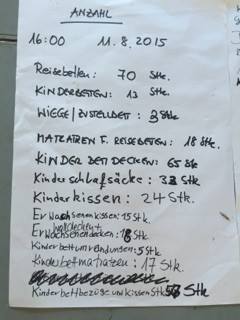 ANZAHL
16:00 11.8.2015
Reisebetten: 70 Stk.
KINDERBETTEN: 13 Stk.
WIEGE/ZUSTELLBETT: 2 Stk.
MATRATZEN F. REISEBETTEN: 18 Stk.
KINDER BETT DECKEN: 65 Stk
Kinderschlafsäcke: 33 Stk.
Kinderkissen: 24 Stk.
Erwachsenenkissen: 15 Stk.
Erwachsenendecken: 18 Stk.
Kinderbettumrandungen: 5 Stk.
Kinderbettmatratzen: 17 Stk.
Kinderbettbezüge und Kissen Stk